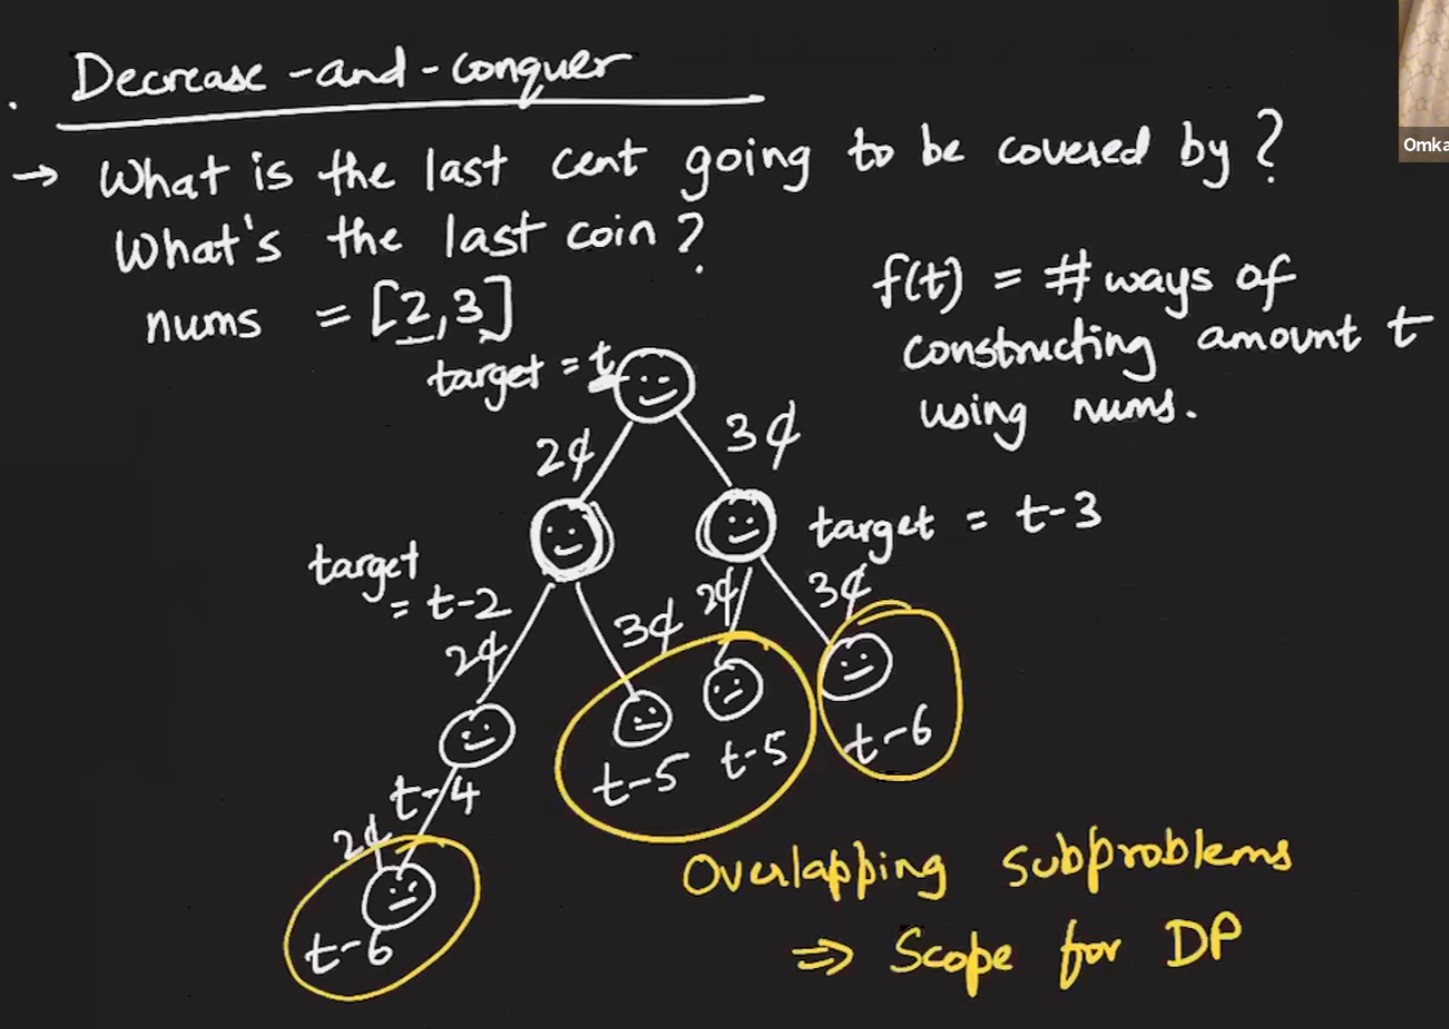 Decrease-and-conquer
→ What is the last cent going to be covered by?
What's the last coin?
nums = [2,3]
f(t) = # ways of
constructing amount t
using nums.
target = t
2¢ 3¢
target = t-3
target
= t-2
2¢ 3¢ 2¢ 3¢
t-4
t-5 t-5 t-6
2¢
t-6
Overlapping subproblems
⇒ Scope for DP
Omka